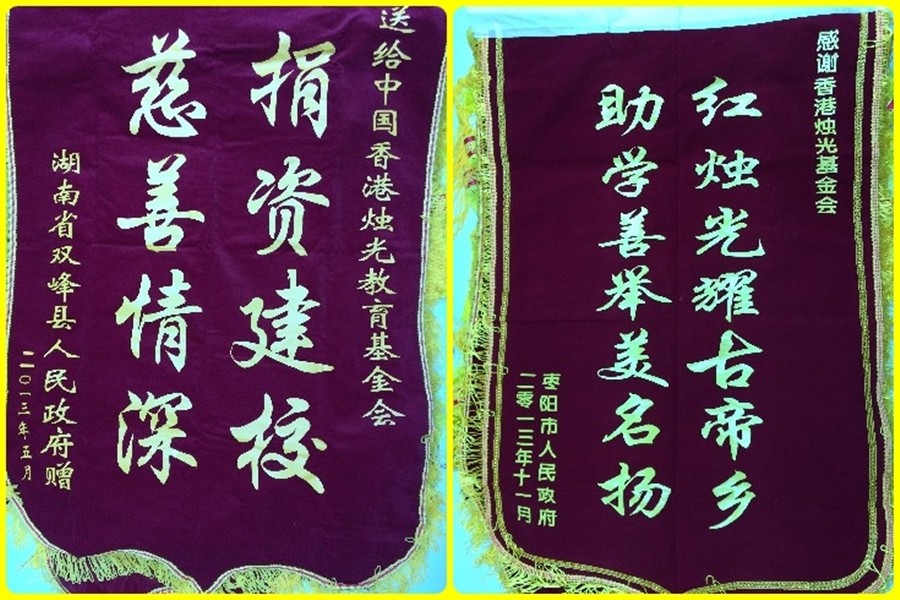 送给中国香港烛光教育基金会
捐资建校
慈善情深
湖南省双峰县人民政府赠
二〇一三年五月
感谢香港烛光基金会
红烛光耀古帝乡
助学善举美名扬
枣阳市人民政府
二零一三年十一月